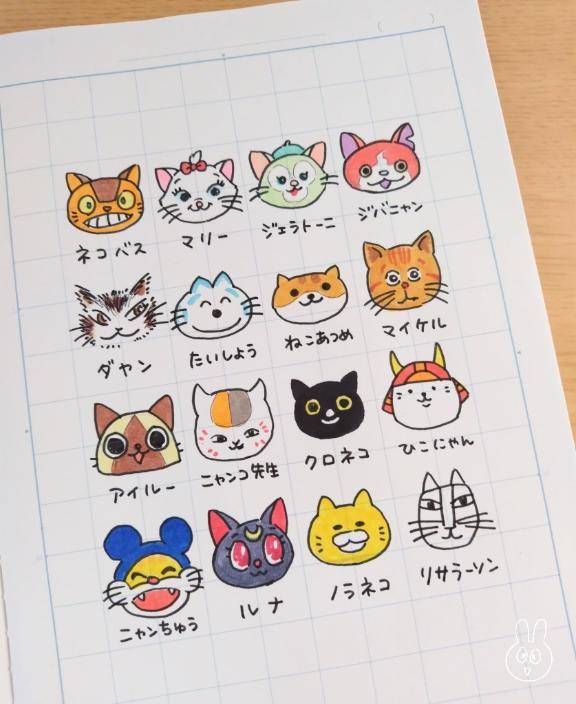 ネコバス
マリー
ジェラトーニ
ジバニャン
ダヤン
たいしょう
ねこあつめ
マイケル
アイルー
ニャンコ先生
クロネコ
ひこにゃん
ニャンちゅう
ルナ
ノラネコ
リサラーソン